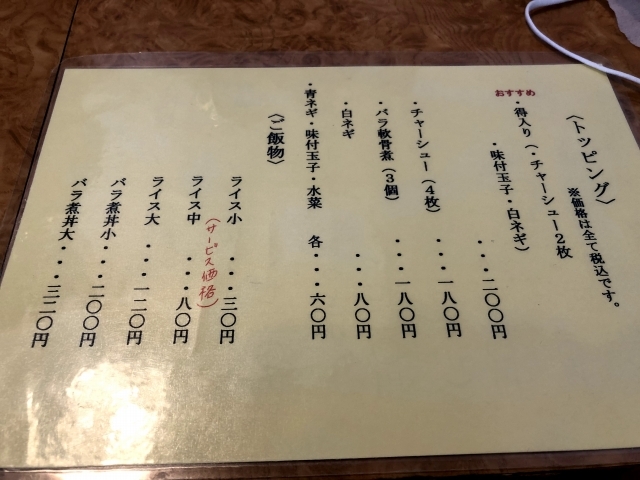 〈トッピング〉
※価格は全て税込です。
おすすめ
・得入り(・チャーシュー2枚
・味付玉子・白ネギ)
・・・二〇〇円
・チャーシュー(4枚)・・・一八〇円
・バラ軟骨煮(3個)・・・一八〇円
・白ネギ・・・八〇円
・青ネギ・味付玉子・水菜 各・・・六〇円
〈ご飯物〉
ライス小・・・三〇円
(サービス価格)
ライス中・・・八〇円
ライス大・・・一二〇円
バラ煮丼小・・・二〇〇円
バラ煮丼大・・・三二〇円